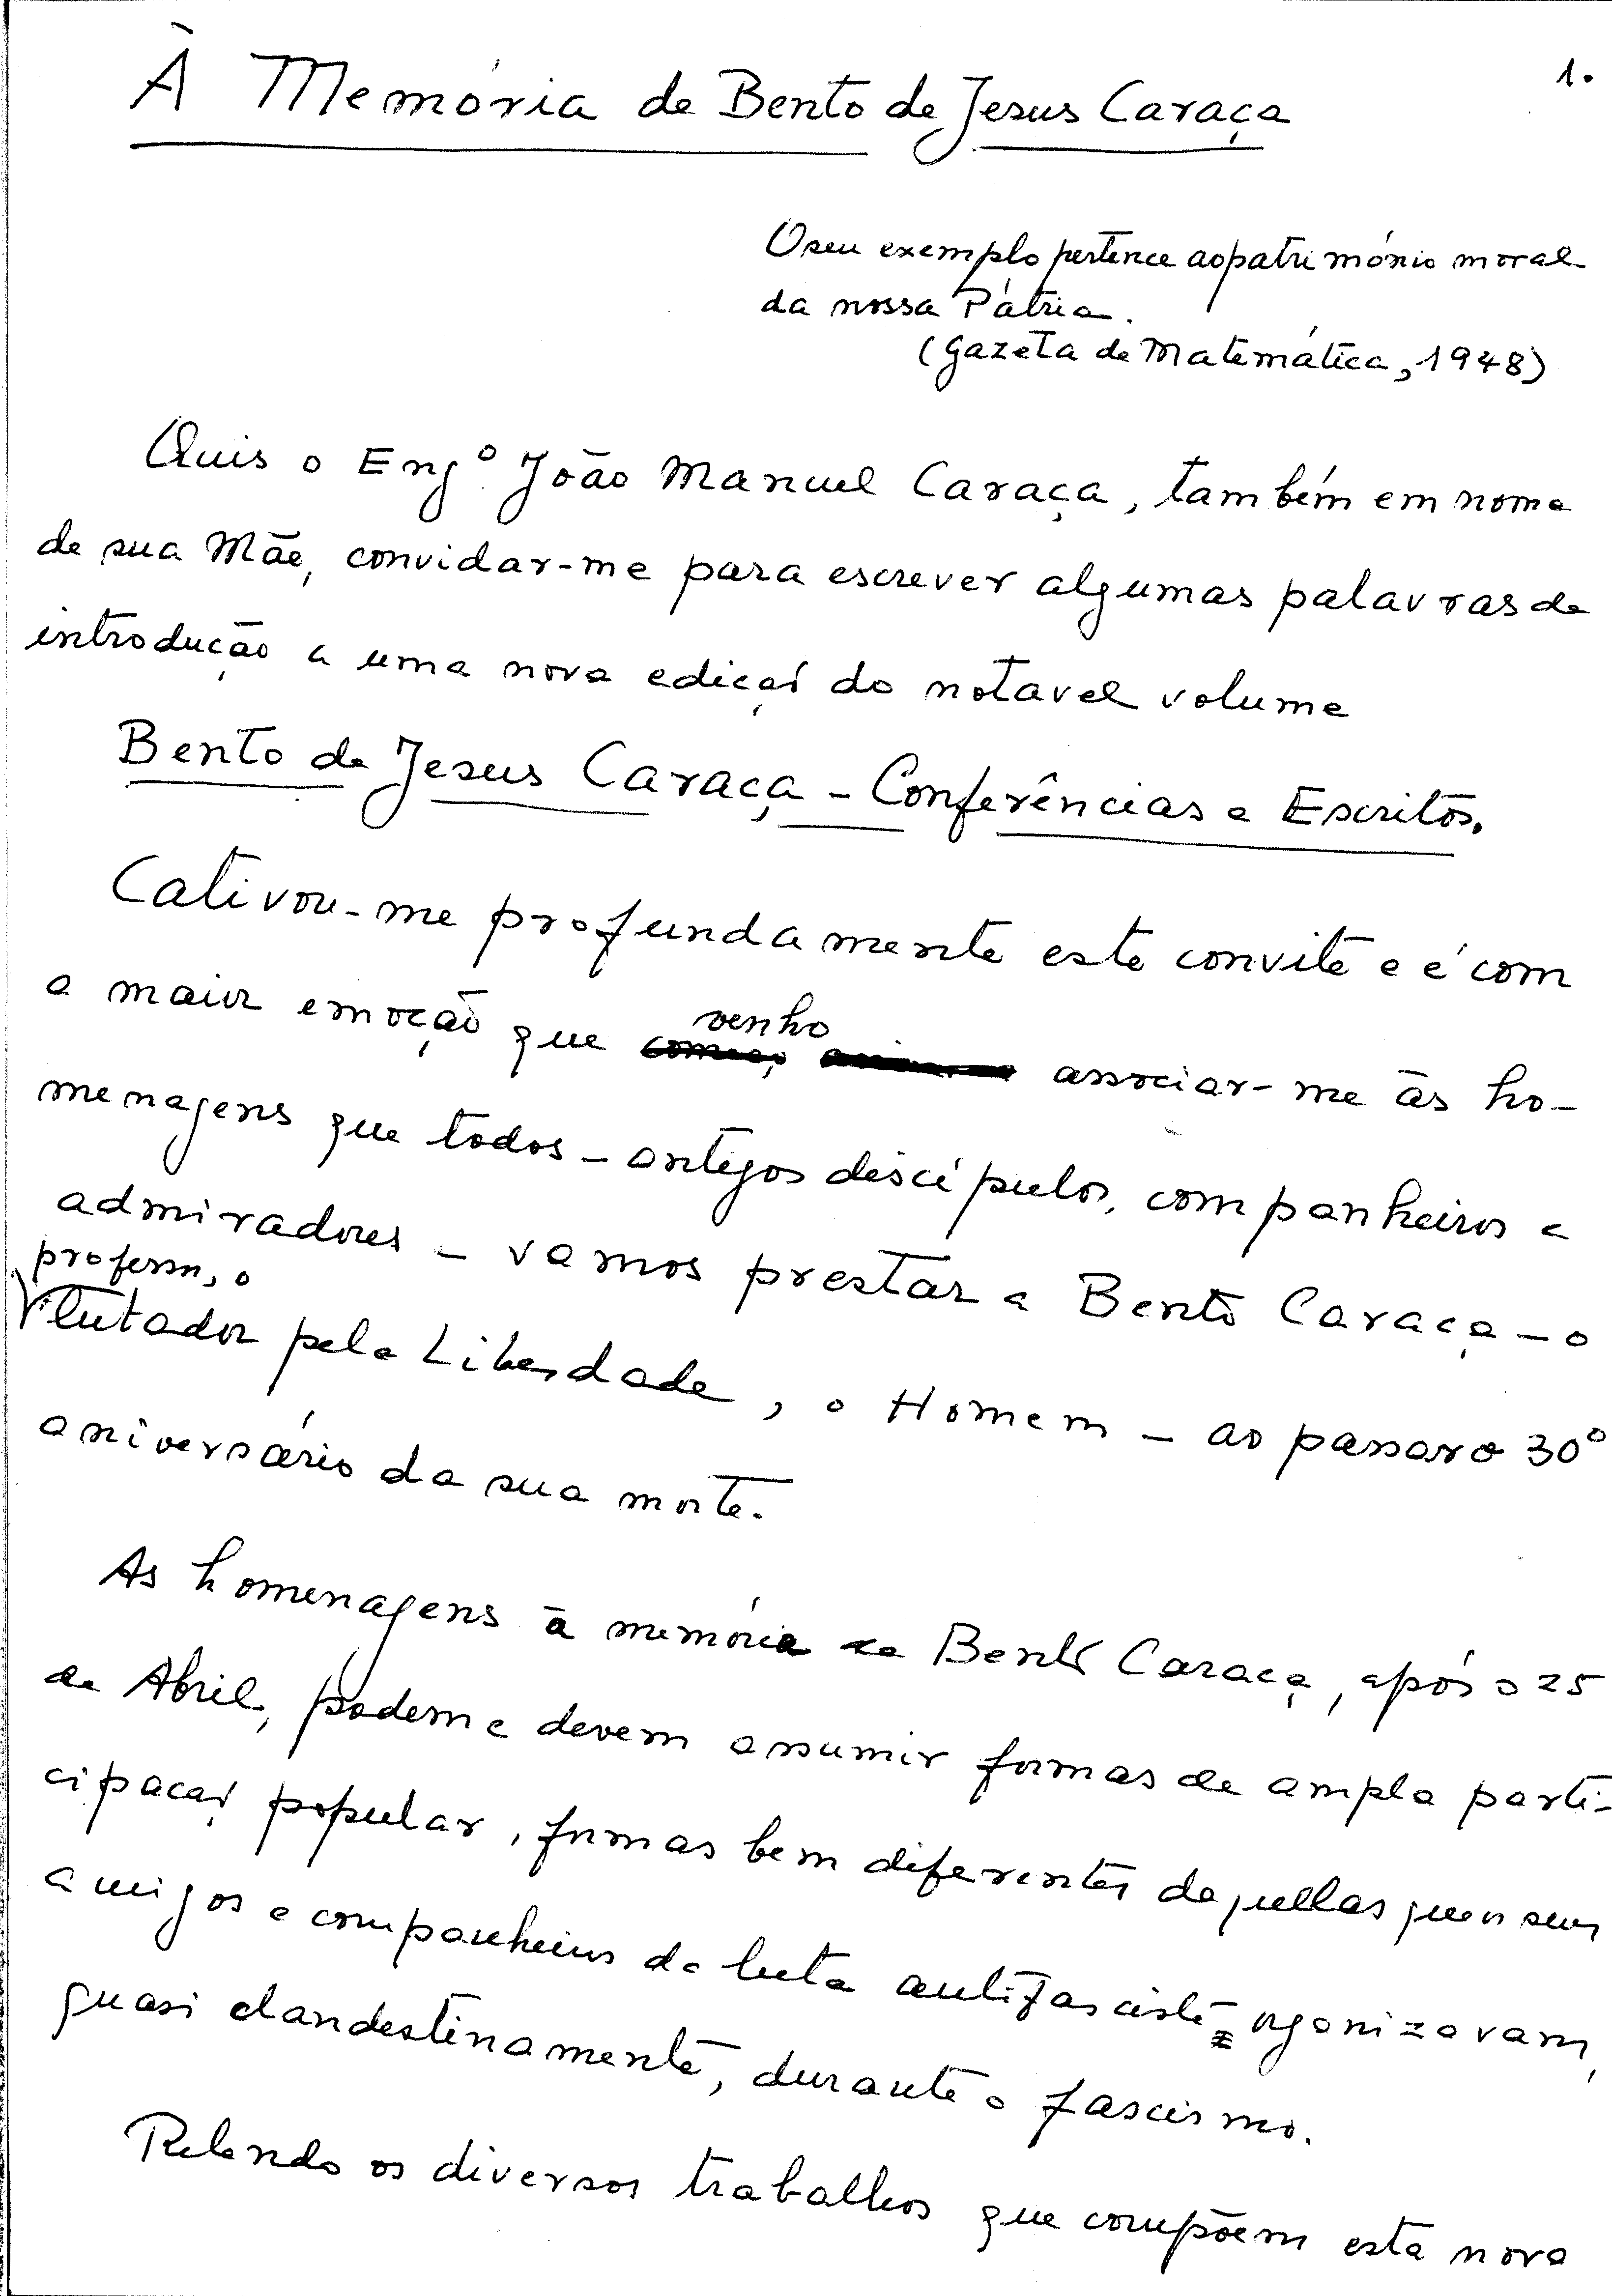 1.
À Memória de Bento de Jesus Caraça
O seu exemplo pertence ao património moral
da nossa Pátria.
(Gazeta de Matemática, 1948)
Quis o Engº. João Manuel Caraça, também em nome
de sua Mãe, convidar-me para escrever algumas palavras de
introdução a uma nova edição do notavel volume
Bento de Jesus Caraça - Conferências e Escritos.
Cativou-me profundamente este convite e é com
a maior emoção que venho associar-me às ho-
menagens que todos - antigos discípulos, companheiros e
admiradores - vamos prestar a Bento Caraça - o
professor, o
lutador pela Liberdade, o Homem - ao passar o 30º
aniversário da sua morte.
As homenagens à memória de Bento Caraça, após o 25
de Abril, podem e devem assumir formas de ampla parti-
cipação popular, formas bem diferentes daquellas que os seus
amigos e companheiros de luta antifascista organizavam,
quasi clandestinamente, durante o fascismo.
Relendo os diversos trabalhos que compõem esta nova